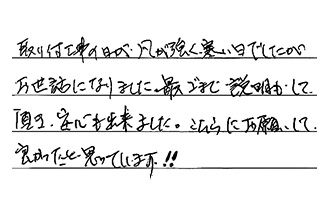 取り付工事の日が、風が強く、寒い日でしたが
お世話になりました。最ごまで説明もして
頂き、安心も出来ました。こちらにお願いして
良かったと思っています!!